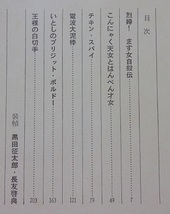 目次
烈婦！ます女自叙伝 7
こんにゃく天女とはんぺん才女 49
チキン・スパイ 79
電波大泥棒 121
いとしのブリジット・ボルドー 163
王様の白切手 203
装幀 黒田征太郎・長友啓典